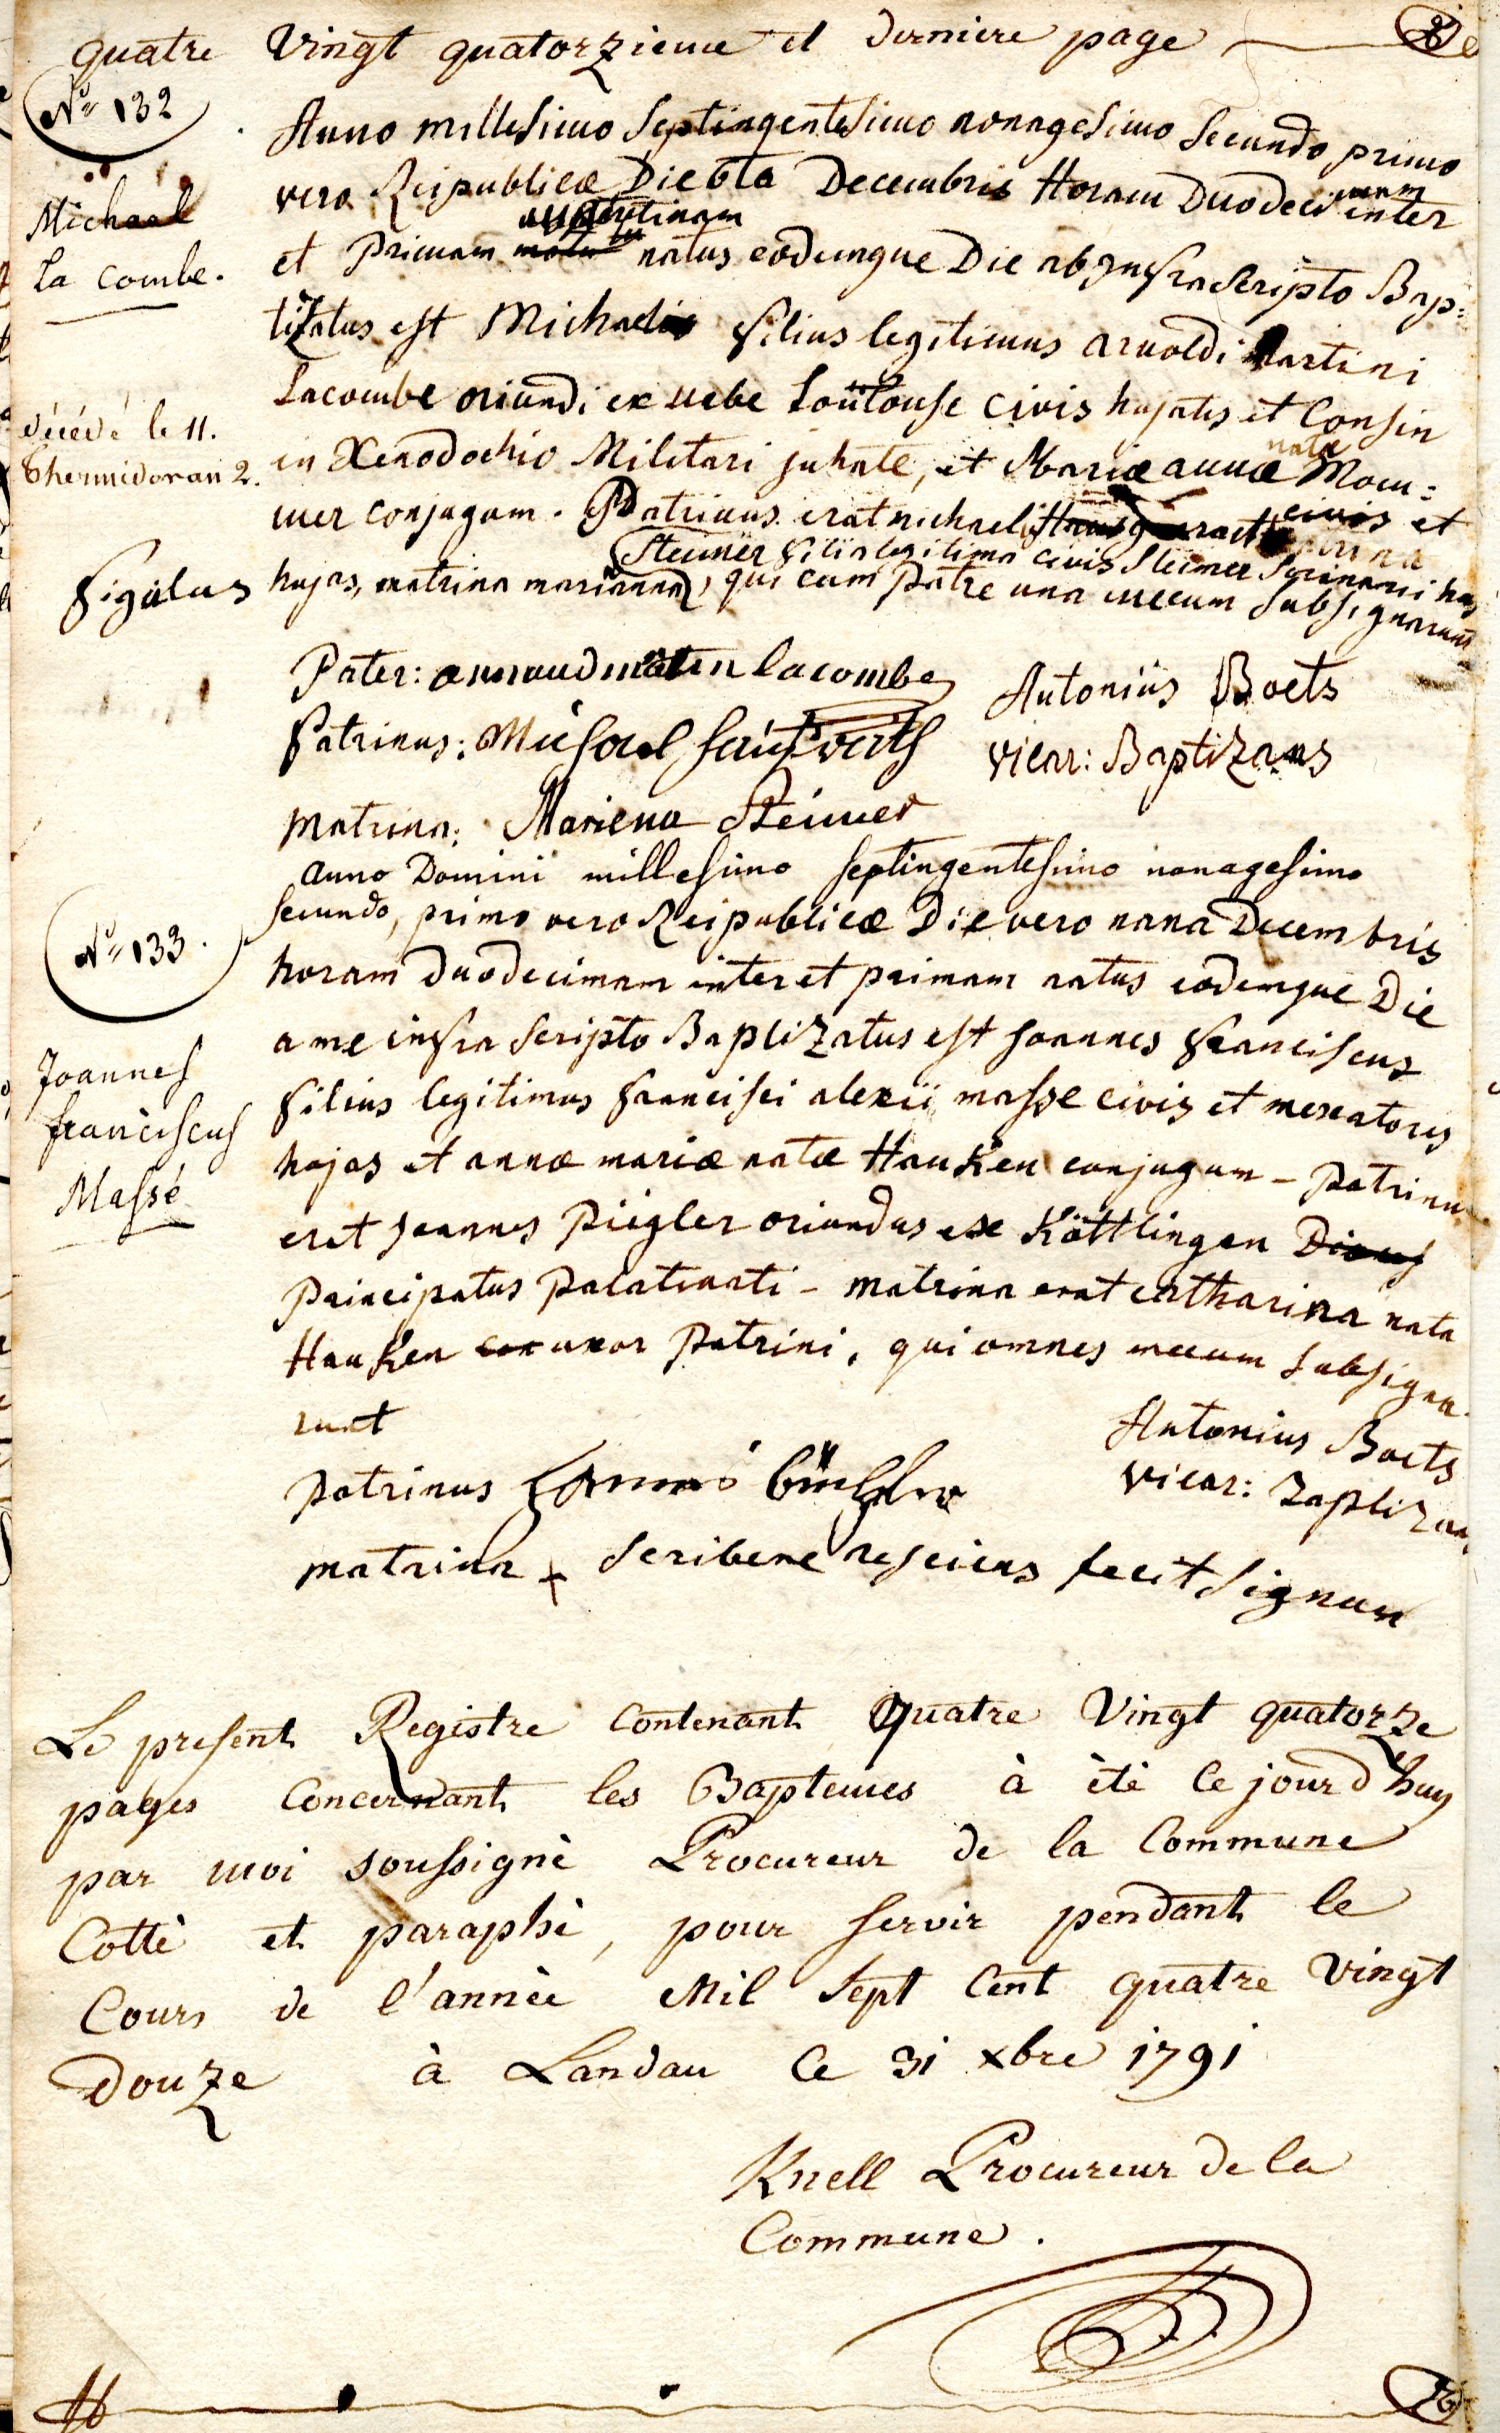 quatre Vingt quatorzieme et derniere page
N° 132
Anno millesimo Septingentesimo nonagesimo Secundo primo
vero Reipublicæ Die 6ta Decembris Horam Duodecimam inter
Michael
La Combe.
et Primam natus eodemque Die ab Infra Scripto Bap:
tizatus est Michael filius legitimus arnoldi Martini
Lacombe oriundi ex urbe Toulouse civis hujatis et Consin
décédé le 11.
Thermidor an 2.
in Xenodochio Militari juhate, et Mariæ annæ nata Mom:
mer conjugum. Patrinus erat michael civis et
Steimer filia legitima civis Steimer
figulus hujas, matrina marianna, qui cum patre una mecum subsignarunt
Pater: arnaud matin lacombe
Antonius Boets
Patrinus: Michael
vicar: Baptizans
Matrina: Mariena Steimer
anno Domini millesimo septingentesimo nonagesimo
secundo, primo vero Reipublicæ Die vero nona Decembris
N° 133.
horam duodecimam inter et primam natus eodemque Die
a me infra scripto Baptizatus est Joannes Franciscus
Joannes
franciscus
Massé
filius legitimus francisci alexii masse civis et mercatoris
hujas et annæ mariæ natæ Hauken conjugum - patrinus
erat Joannes Piegler oriundus ex Köttlingen
Principatus Palatinati - matrina erat catharina nata
Hauken uxor Patrini, qui omnes mecum subsigna
runt
Antonius Boets
vicar: Baptizans
patrinus
matrina + scribere nesciens fecit signum
Le present Registre Contenant Quatre Vingt quatorze
pages Concernant les Baptemes à èté Ce jourd'huy
par moi soussignè Procureur de la Commune
Cottè et paraphè, pour servir pendant le
Cours de l'annèe Mil Sept Cent quatre Vingt
Douze à Landau Ce 31 xbre 1791
Knell Procureur de la
Commune.